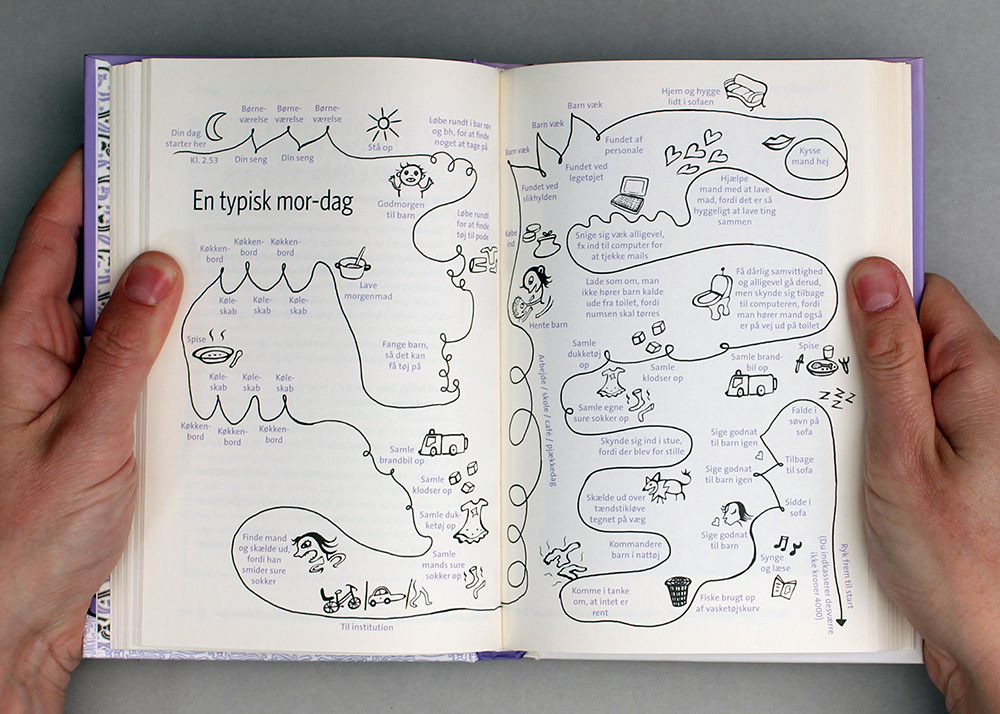 Din dag
starter her
Kl. 2.53
Børne-
værelse
Børne-
værelse
Børne-
værelse
Din seng
Din seng
Stå op
Løbe rundt i bar røv
og bh, for at finde
noget at tage på
Godmorgen
til barn
En typisk mor-dag
Løbe rundt
for at finde
tøj til pode
Køkken-
bord
Køkken-
bord
Køkken-
bord
Køle-
skab
Køle-
skab
Køle-
skab
Lave
morgenmad
Spise
Fange barn,
så det kan
få tøj på
Køle-
skab
Køle-
skab
Køle-
skab
Køkken-
bord
Køkken-
bord
Køkken-
bord
Samle
brandbil op
Samle
klodser op
Samle duk-
ketøj op
Samle
mands sure
sokker op
Finde mand
og skælde ud,
fordi han
smider sure
sokker
Til institution
Arbejde / skole / café / pjækkedag
Hente barn
Købe
ind
Fundet ved
slikhylden
Barn væk
Barn væk
Fundet ved
legetøjet
Barn væk
Fundet af
personale
Hjem og hygge
lidt i sofaen
Kysse
mand hej
Hjælpe
mand med at lave
mad, fordi det er så
hyggeligt at lave ting
sammen
Snige sig væk alligevel,
fx ind til computer for
at tjekke mails
Lade som om, man
ikke hører barn kalde
ude fra toilet, fordi
numsen skal tørres
Få dårlig samvittighed
og alligevel gå derud,
men skynde sig tilbage
til computeren, fordi
man hører mand også
er på vej ud på toilet
Samle brand-
bil op
Samle
klodser op
Samle
dukketøj
op
Samle egne
sure sokker op
Skynde sig ind i stue,
fordi der blev for stille
Skælde ud over
tændstikløve
tegnet på væg
Kommandere
barn i nattøj
Komme i tanke
om, at intet er
rent
Fiske brugt op
af vasketøjskurv
Synge
og læse
Sige godnat
til barn
Sidde i
sofa
Sige godnat
til barn igen
Tilbage
til sofa
Sige godnat
til barn igen
Falde i
søvn på
sofa
Spise
ZZ
ZZZ
Ryk frem til start
(Du indkasserer desværre
ikke kroner 4000)